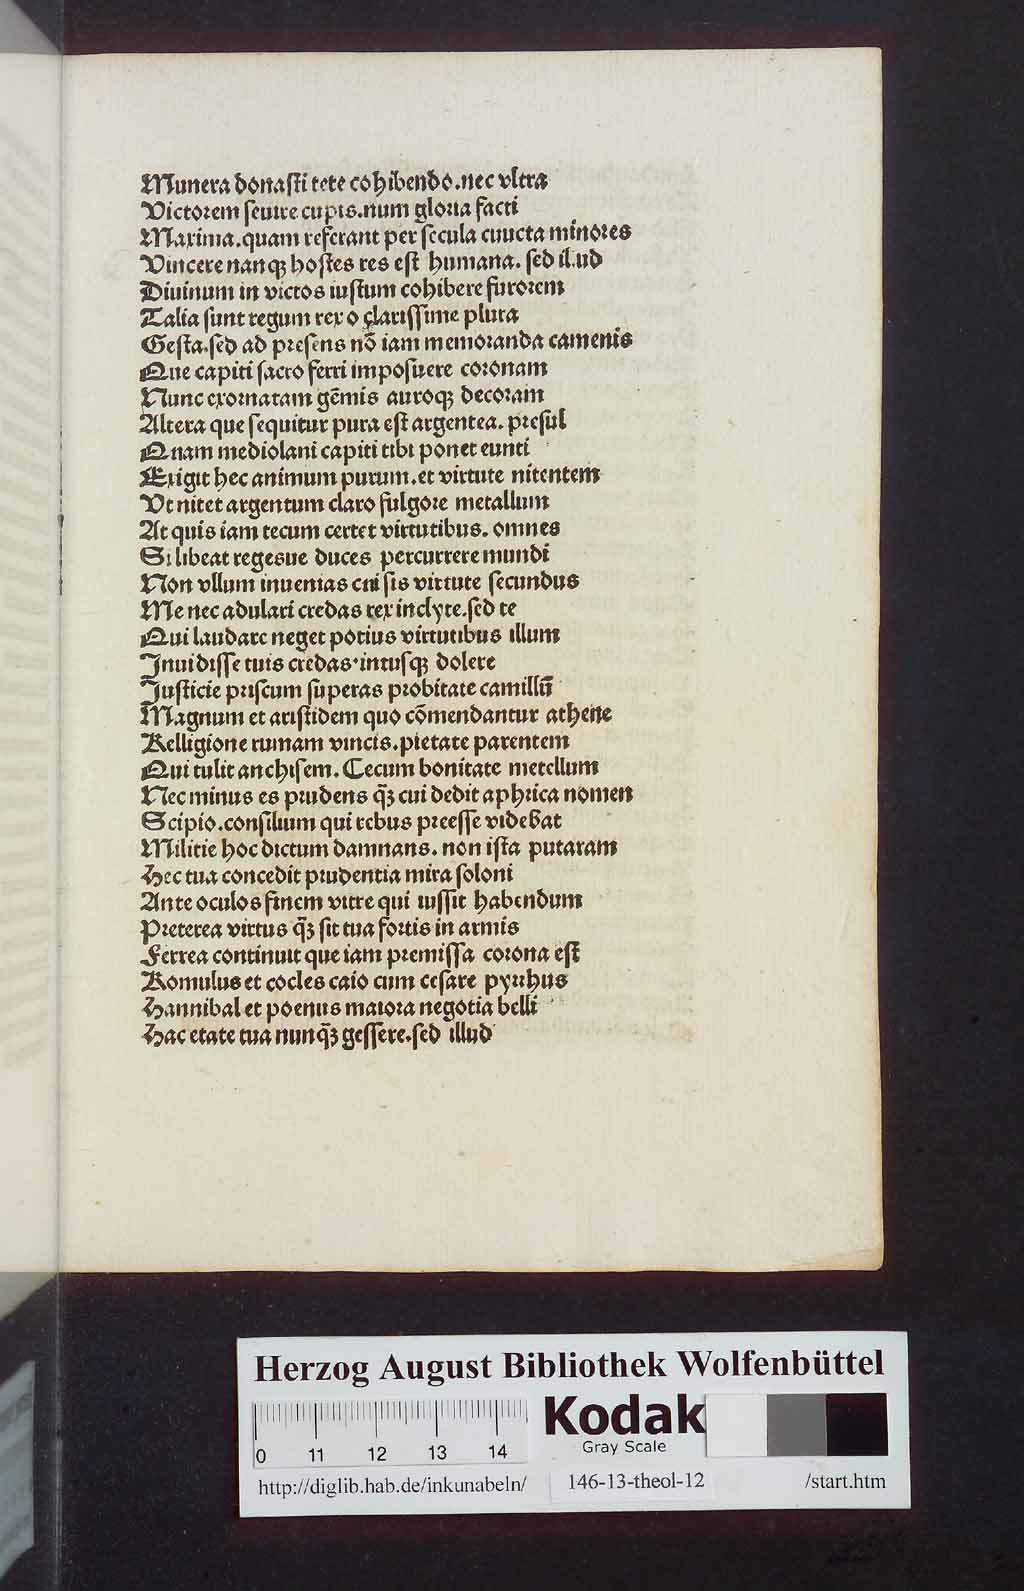 Munera donasti tete cohibendo.nec vltra
Victorem seuire cupis.num gloria facti
Maxima.quam referant per secula cuucta minores
Vincere nanqꝫ hostes res est humana. sed il.ud
Diuinum in victos iustum cohibere furorem
Talia sunt regum rex o clarissime plura
Gesta.sed ad presens nō iam memoranda camenis
Que capiti sacro ferri imposuere coronam
Nunc exornatam gēmis auroqꝫ decoram
Altera que sequitur pura est argentea. presul
Quam mediolani capiti tibi ponet eunti
Exigit hec animum purum.et virtute nitentem
Vt nitet argentum claro fulgore metallum
At quis iam tecum certet virtutibus. omnes
Si libeat regesue duces percurrere mundi
Non vllum inuenias cui sis virtute secundus
Me nec adulari credas rex inclyte.sed te
Qui laudare neget potius virtutibus illum
Inuidisse tuis credas·intusqꝫ dolere
Iusticie priscum superas probitate camillū
Magnum et aristidem quo cōmendantur athene
Relligione numam vincis.pietate parentem
Qui tulit anchisem. Cecum bonitate metellum
Nec minus es prudens q̄ꝫ cui dedit aphrica nomen
Scipio.consilium qui rebus preesse videbat
Militie hoc dictum damnans. non ista putaram
Hec tua concedit prudentia mira soloni
Ante oculos finem vitre qui iussit habendum
Preterea virtus q̄ꝫ sit tua fortis in armis
Ferrea continuit que iam premissa corona est
Romulus et cocles caio cum cesare pyrrhus
Hannibal et poenus maiora negotia belli
Hac etate tua nunq̄ꝫ gessere.sed illud
Herzog August Bibliothek Wolfenbüttel
Kodak
Gray Scale
0 11 12 13 14
http://diglib.hab.de/inkunabeln/ 146-13-theol-12 /start.htm